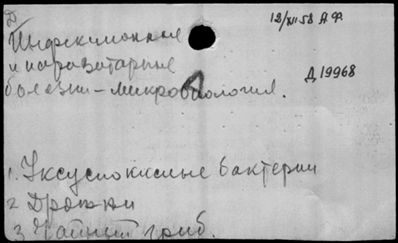 Д
12/XII 58 А.Ф.
Инфекционные
и паразитарные
болезни – микробиология.
Д 19968
1. Уксуснокислые бактерии
2 Дрожжи
3 Чайный гриб.